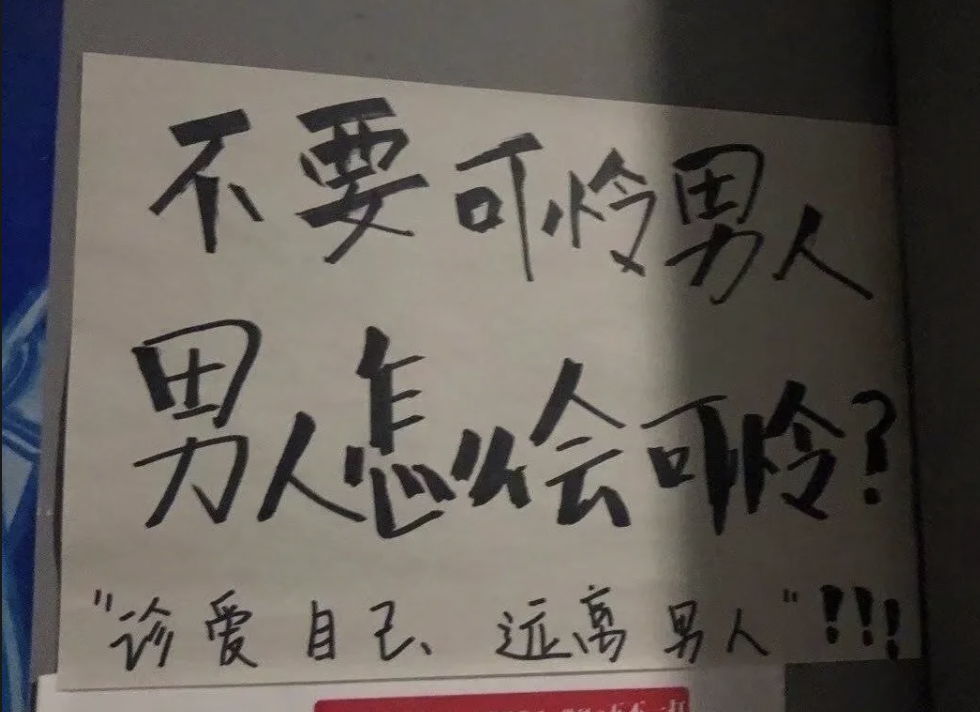 不要可怜男人
男人怎么会可怜?
"诊爱自己、远离男人"!!!